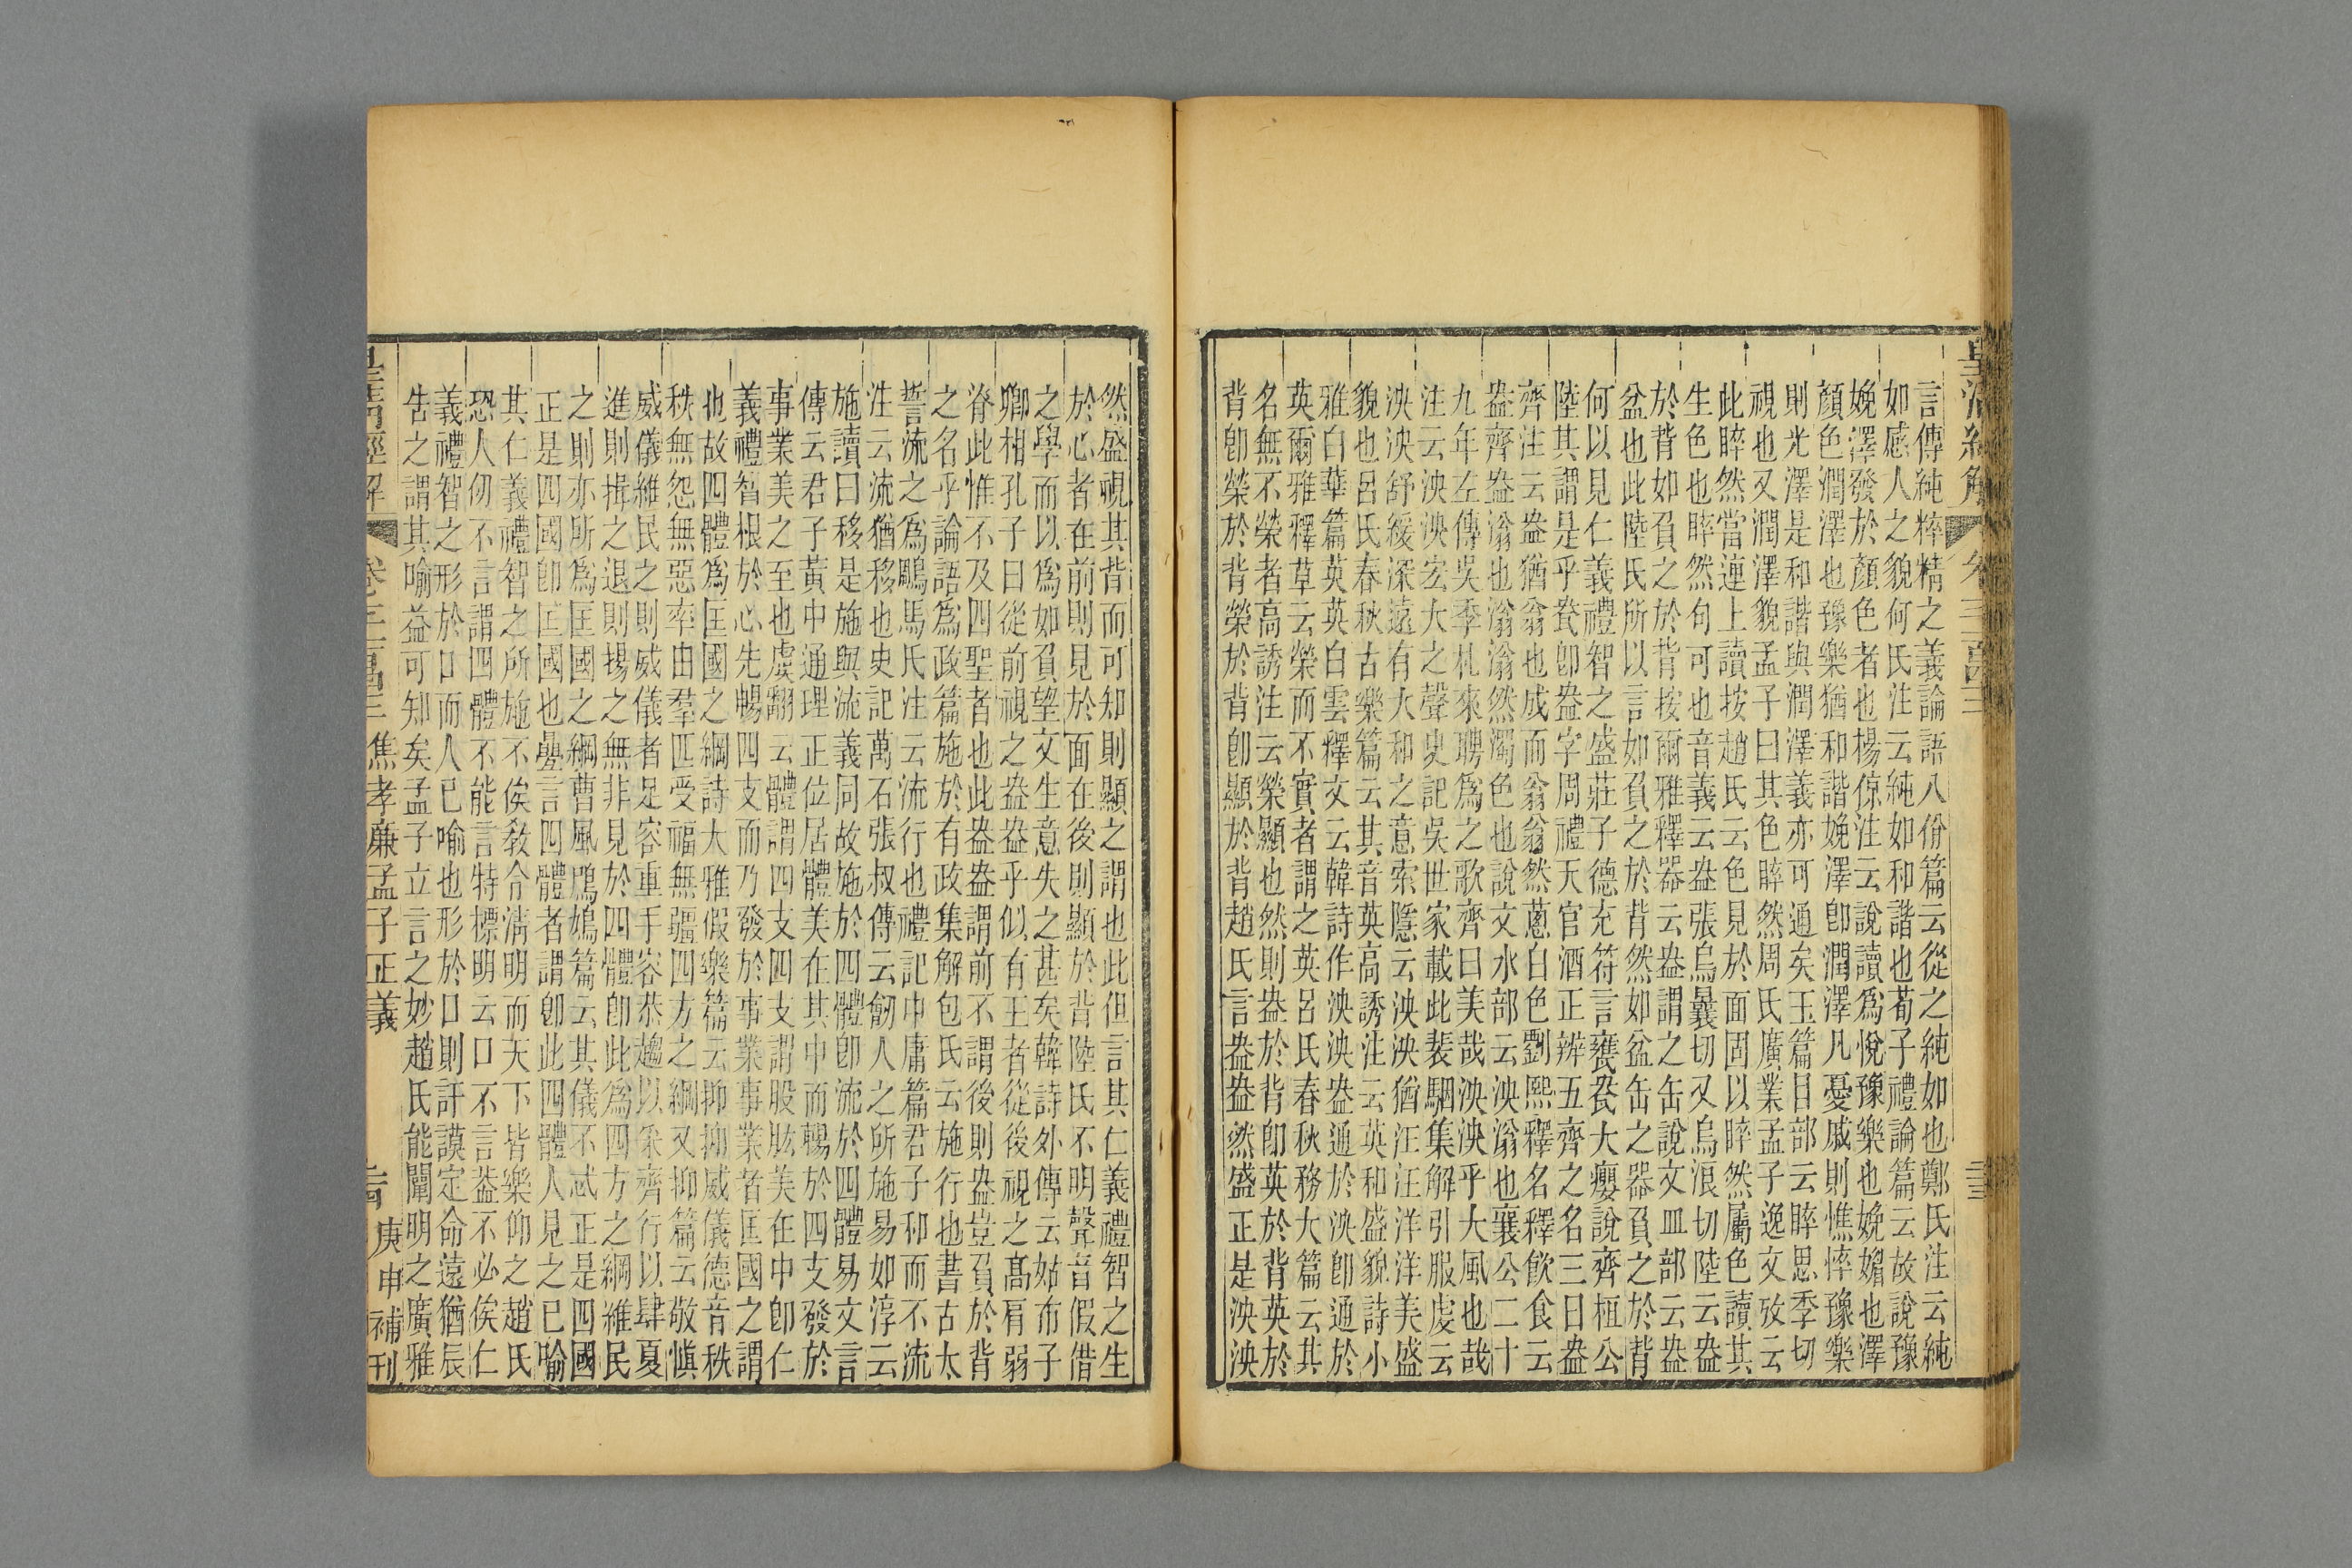 皇清經解
卷三
三
言傳純粹精之義論語八佾篇云從之純如也鄭氏注云純
如感人之貌何氏注云純如和諧也荀子禮論篇云故說豫
娩澤發於顏色者也楊倞注云說讀爲悅豫樂也娩媚也澤
顏色潤澤也豫樂猶和諧娩澤卽潤澤凡憂戚則憔悴豫樂
則光澤是和諧與潤澤義亦可通矣玉篇目部云睟思季切
視也又潤澤貌孟子曰其色睟然周氏廣業孟子逸文攷云
此睟然當連上讀按趙氏云色見於面固以睟然屬色讀其
生色也睟然句可也音義云盎張烏曩切又烏浪切陸云盎
於背如負之於背按爾雅釋器云盎謂之缶說文皿部云盎
盆也此陸氏所以言如負之於背然如盆缶之器負之於背
何以見仁義禮智之盛莊子德充符言甕㼜大癭說齊桓公
陸其謂是乎㼜卽盎字周禮天官酒正辨五齊之名三曰盎
齊注云盎猶翁也成而翁翁然蔥白色劉熙釋名釋飮食云
盎齊盎滃也滃滃然濁色也說文水部云泱滃也襄公二十
九年左傳吳季札來聘爲之歌齊曰美哉泱泱乎大風也哉
注云泱泱宏大之聲史記吳世家載此裴駰集解引服虔云
泱泱舒緩深遠有大和之意索隱云泱泱猶汪汪洋洋美盛
貌也呂氏春秋古樂篇云其音英高誘注云英和盛貌詩小
雅白華篇英英白雲釋文云韓詩作泱泱盎通於泱卽通於
英爾雅釋草云榮而不實者謂之英呂氏春秋務大篇云其
名無不榮者高誘注云榮顯也然則盎於背卽英於背英於
背卽榮於背榮於背卽顯於背趙氏言盎盎然盛正是泱泱
然盛視其背而可知則顯之謂也此但言其仁義禮智之生
於心者在前則見於面在後則顯於背陸氏不明聲音假借
之學而以爲如負望文生意失之甚矣韓詩外傳云姑布子
卿相孔子曰從前視之盎盎乎似有王者從後視之高肩弱
脊此惟不及四聖者也此盎盎謂前不謂後則盎豈負於背
之名乎論語爲政篇施於有政集解包氏云施行也書古太
誓流之爲鵰馬氏注云流行也禮記中庸篇君子和而不流
注云流猶移也史記萬石張叔傳云劒人之所施易如淳云
施讀曰移是施與流義同故施於四體卽流於四體易文言
傳云君子黃中通理正位居體美在其中而暢於四支發於
事業美之至也虞翻云體謂四支四支謂股肱美在中卽仁
義禮智根於心先暢四支而乃發於事業事業者匡國之謂
也故四體爲匡國之綱詩大雅假樂篇云抑抑威儀德音秩
秩無怨無惡率由羣匹受福無疆四方之綱又抑篇云敬愼
威儀維民之則威儀者足容重手容恭趨以采齊行以肆夏
進則揖之退則揚之無非見於四體卽此爲四方之綱維民
之則亦所爲匡國之綱曹風鳲鳩篇云其儀不忒正是四國
正是四國卽匡國也㬪言四體者謂卽此四體人見之已喻
其仁義禮智之所施不俟敎令淸明而天下皆樂仰之趙氏
恐人仞不言謂四體不能言特標明云口不言葢不必俟仁
義禮智之形於口而人已喻也形於口則訏謨定命遠猶辰
告之謂其喻益可知矣孟子立言之妙趙氏能闡明之廣雅
焦孝廉孟子正義
庚申補刊